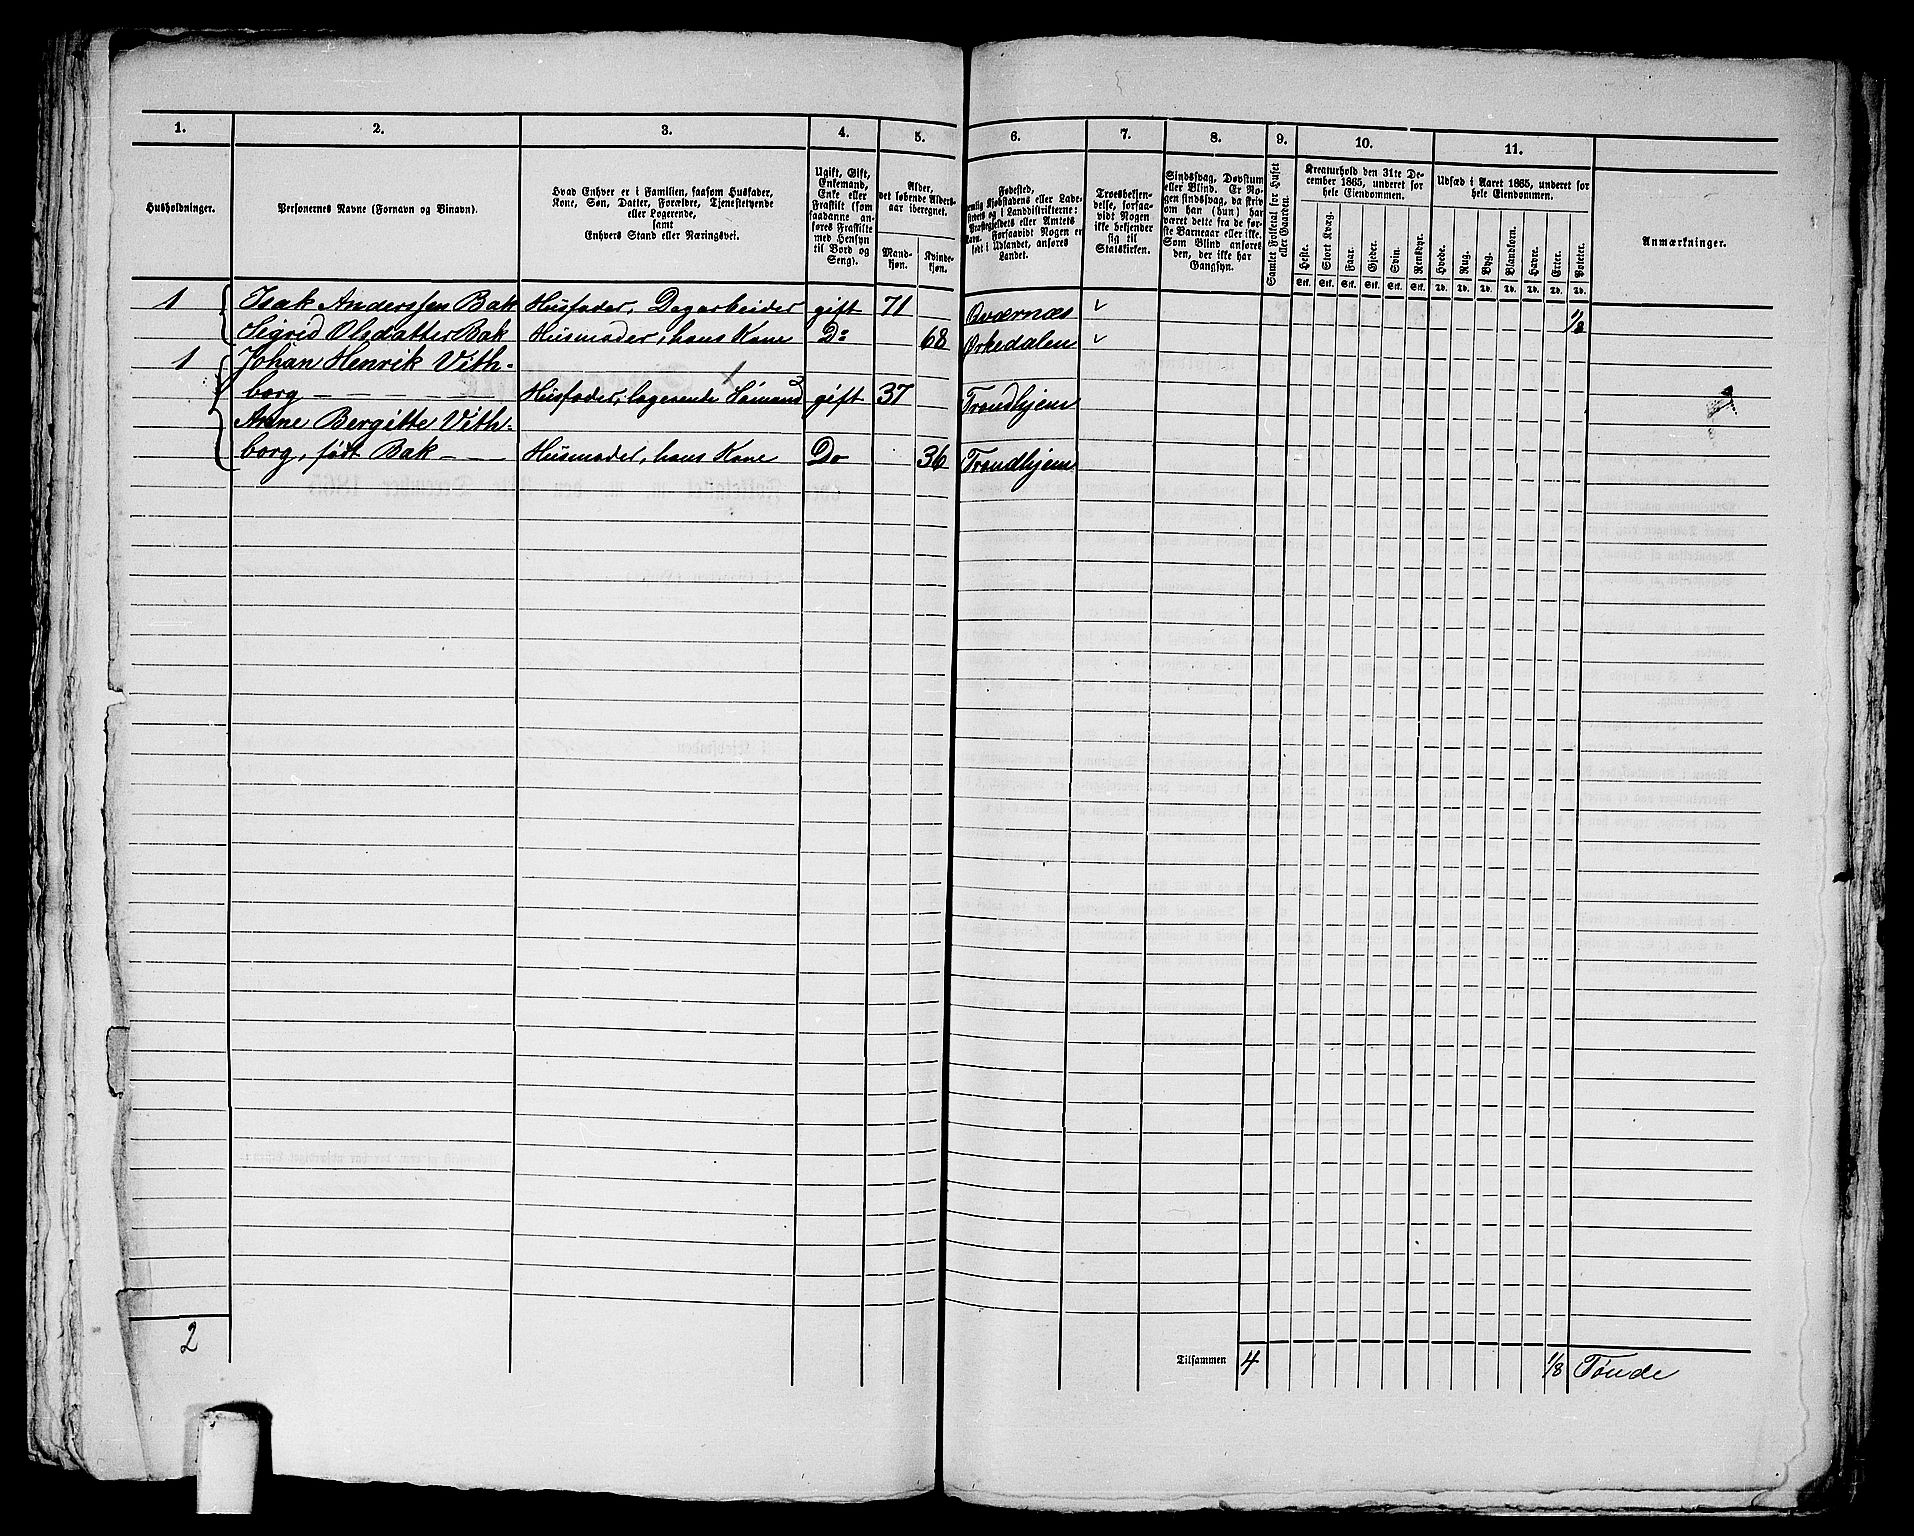 1. 2. 3. 4. 5. 6. 7. 8. 9. 10. 11.
Husholdninger.
Personernes Navne (Fornavn og Binavn).
Hvad Enhver er i Familien, saasom Husfader,
Kone, Søn, Datter, Forældre, Tjenestetyende
eller Logerende,
samt
Enhvers Stand eller Næringsvei.
Ugift, Gift,
Enkemand,
Enke eller
Fraskilt (som
saadanne an-
føres Fraskilte
med Hensyn
til Bord og
Seng).
Alder,
det løbende Alders-
aar iberegnet.
Mand-
kjøn.
Kvinde-
kjøn.
Fødested,
Landet.
Troesbekjen-
delse, forsaa-
vidt Nogen
ikke bekjender
sig til
Statskirken.
Sindssvag, Døvstum
eller Blind. Er No-
gen sindssvag, da skriv
om han (hun) har
været dette fra de før-
ste Barneaar eller ikke.
Som Blind anføres
den, der ikke har
Gangsyn.
Samlet Folketal for Huset
eller Gaarden.
Kreaturhold den 31te De-
cember 1865, underet for
hele Eiendommen.
Heste. Stort Kvæg. Faar. Gjeder. Svin. Rensdyr.
Stk. Stk. Stk. Stk. Stk. Stk.
Udsæd i Aaret 1865, underet for
hele Eiendommen.
Hvede. Rug. Byg. Blandkorn. Havre. Erter. Poteter.
Td. Td. Td. Td. Td. Td. Td.
Anmærkninger.
1 Isak Anderssen Bak Husfader, Dagarbeider gift 71 Qværnæs 1/8
Sigrid Olsdatter Bak Husmoder, hans Kone Do 68 Ørkedalen
1 Johan Henrik Vith-
borg Husfader, logerende Sømand gift 37 Trondhjem
Anne Bergitte Vith-
borg, født Bak Husmoder, hans Kone Do 36 Trondhjem
2 Tilsammen 4 1/8 Tønde